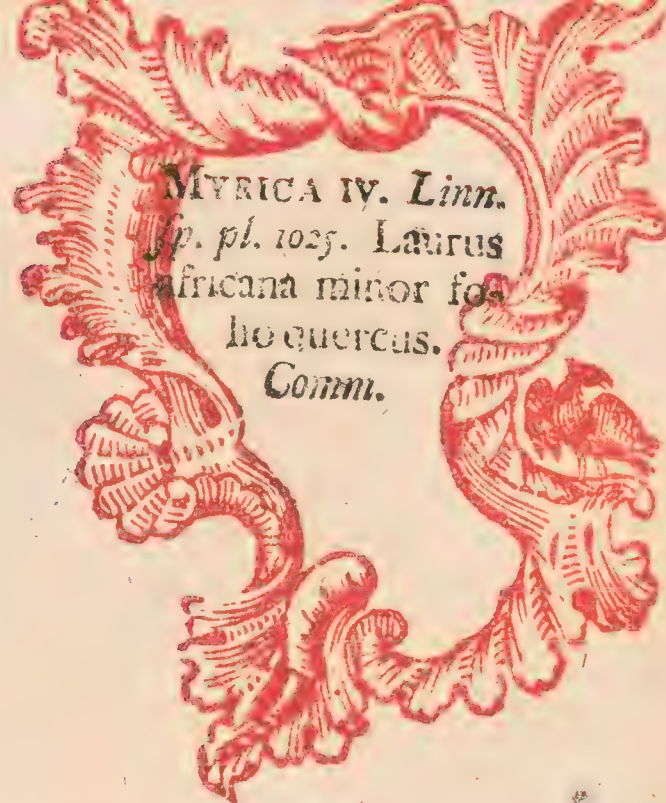 MYRICA IV. Linn.
sp. pl. 1025. Laurus
africana minor fo-
lio quercus.
Comm.